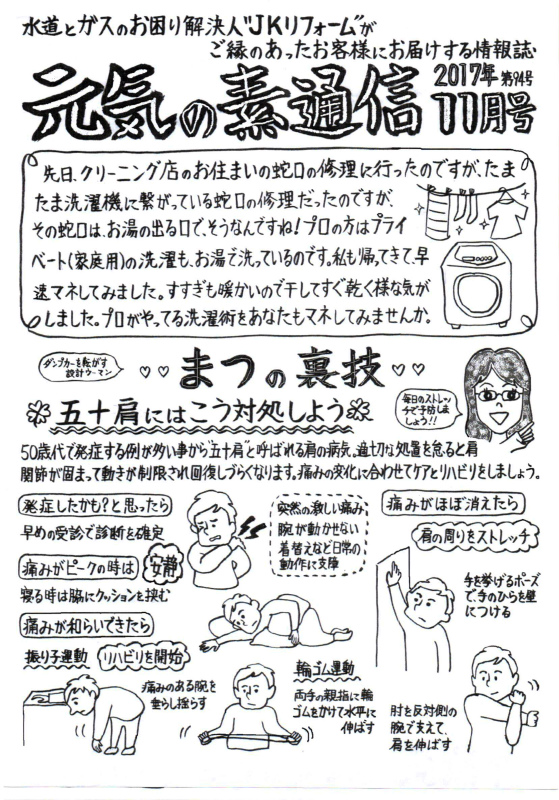 水道とガスのお困り解決人"JKリフォーム"が
ご縁のあったお客様にお届けする情報誌
元気の素通信 2017年 第94号 11月号
先日、クリーニング店のお住まいの蛇口の修理に行ったのですが、たま
たま洗濯機に繋がっている蛇口の修理だったのですが、
その蛇口は、お湯の出る口で、そうなんですね!プロの方はプライ
ベート(家庭用)の洗濯も、お湯で洗っているのです。私も帰ってきて、早
速マネしてみました。すすぎも暖かいので干してすぐ乾く様な気が
しました。プロがやってる洗濯術をあなたもマネしてみませんか。
ダンプカーを転がす
設計ウーマン
♡♡ まつの裏技 ♡♡
五十肩にはこう対処しよう
毎日のストレッ
チで予防しま
しょう!!
50歳代で発症する例が多い事から"五十肩"と呼ばれる肩の病気。適切な処置を怠ると肩
関節が固まって動きが制限され回復しづらくなります。痛みの変化に合わせてケアとリハビリをしましょう。
発症したかも?と思ったら
早めの受診で診断を確定
突然の激しい痛み
腕が動かせない
着替えなど日常の
動作に支障
痛みがピークの時は 安静
寝る時は脇にクッションを挟む
痛みが和らいできたら
振り子運動 リハビリを開始
痛みのある腕を
垂らし揺らす
輪ゴム運動
両手の親指に輪
ゴムをかけて水平に
伸ばす
痛みがほぼ消えたら
肩の周りをストレッチ
手を挙げるポーズ
で手のひらを壁
につける
肘を反対側の
腕で支えて、
肩を伸ばす